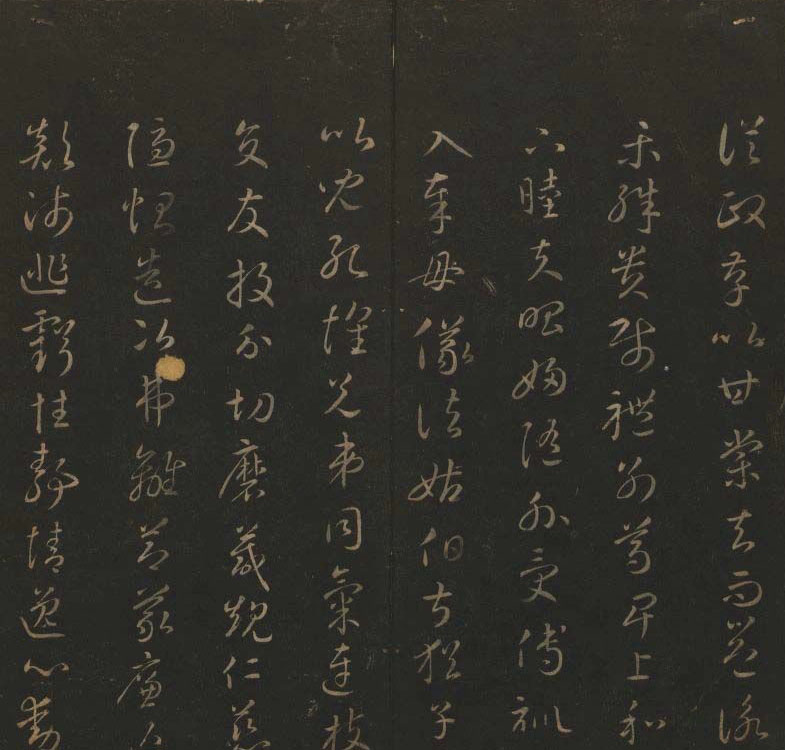 從政存以甘棠去而益詠
樂殊貴賤禮別尊卑上和
下睦夫唱婦隨外受傅訓
入奉母儀諸姑伯叔猶子
比兒孔懷兄弟同氣連枝
交友投分切磨箴規仁慈
隱惻造次弗離節義廉
顛沛匪虧性靜情逸心動